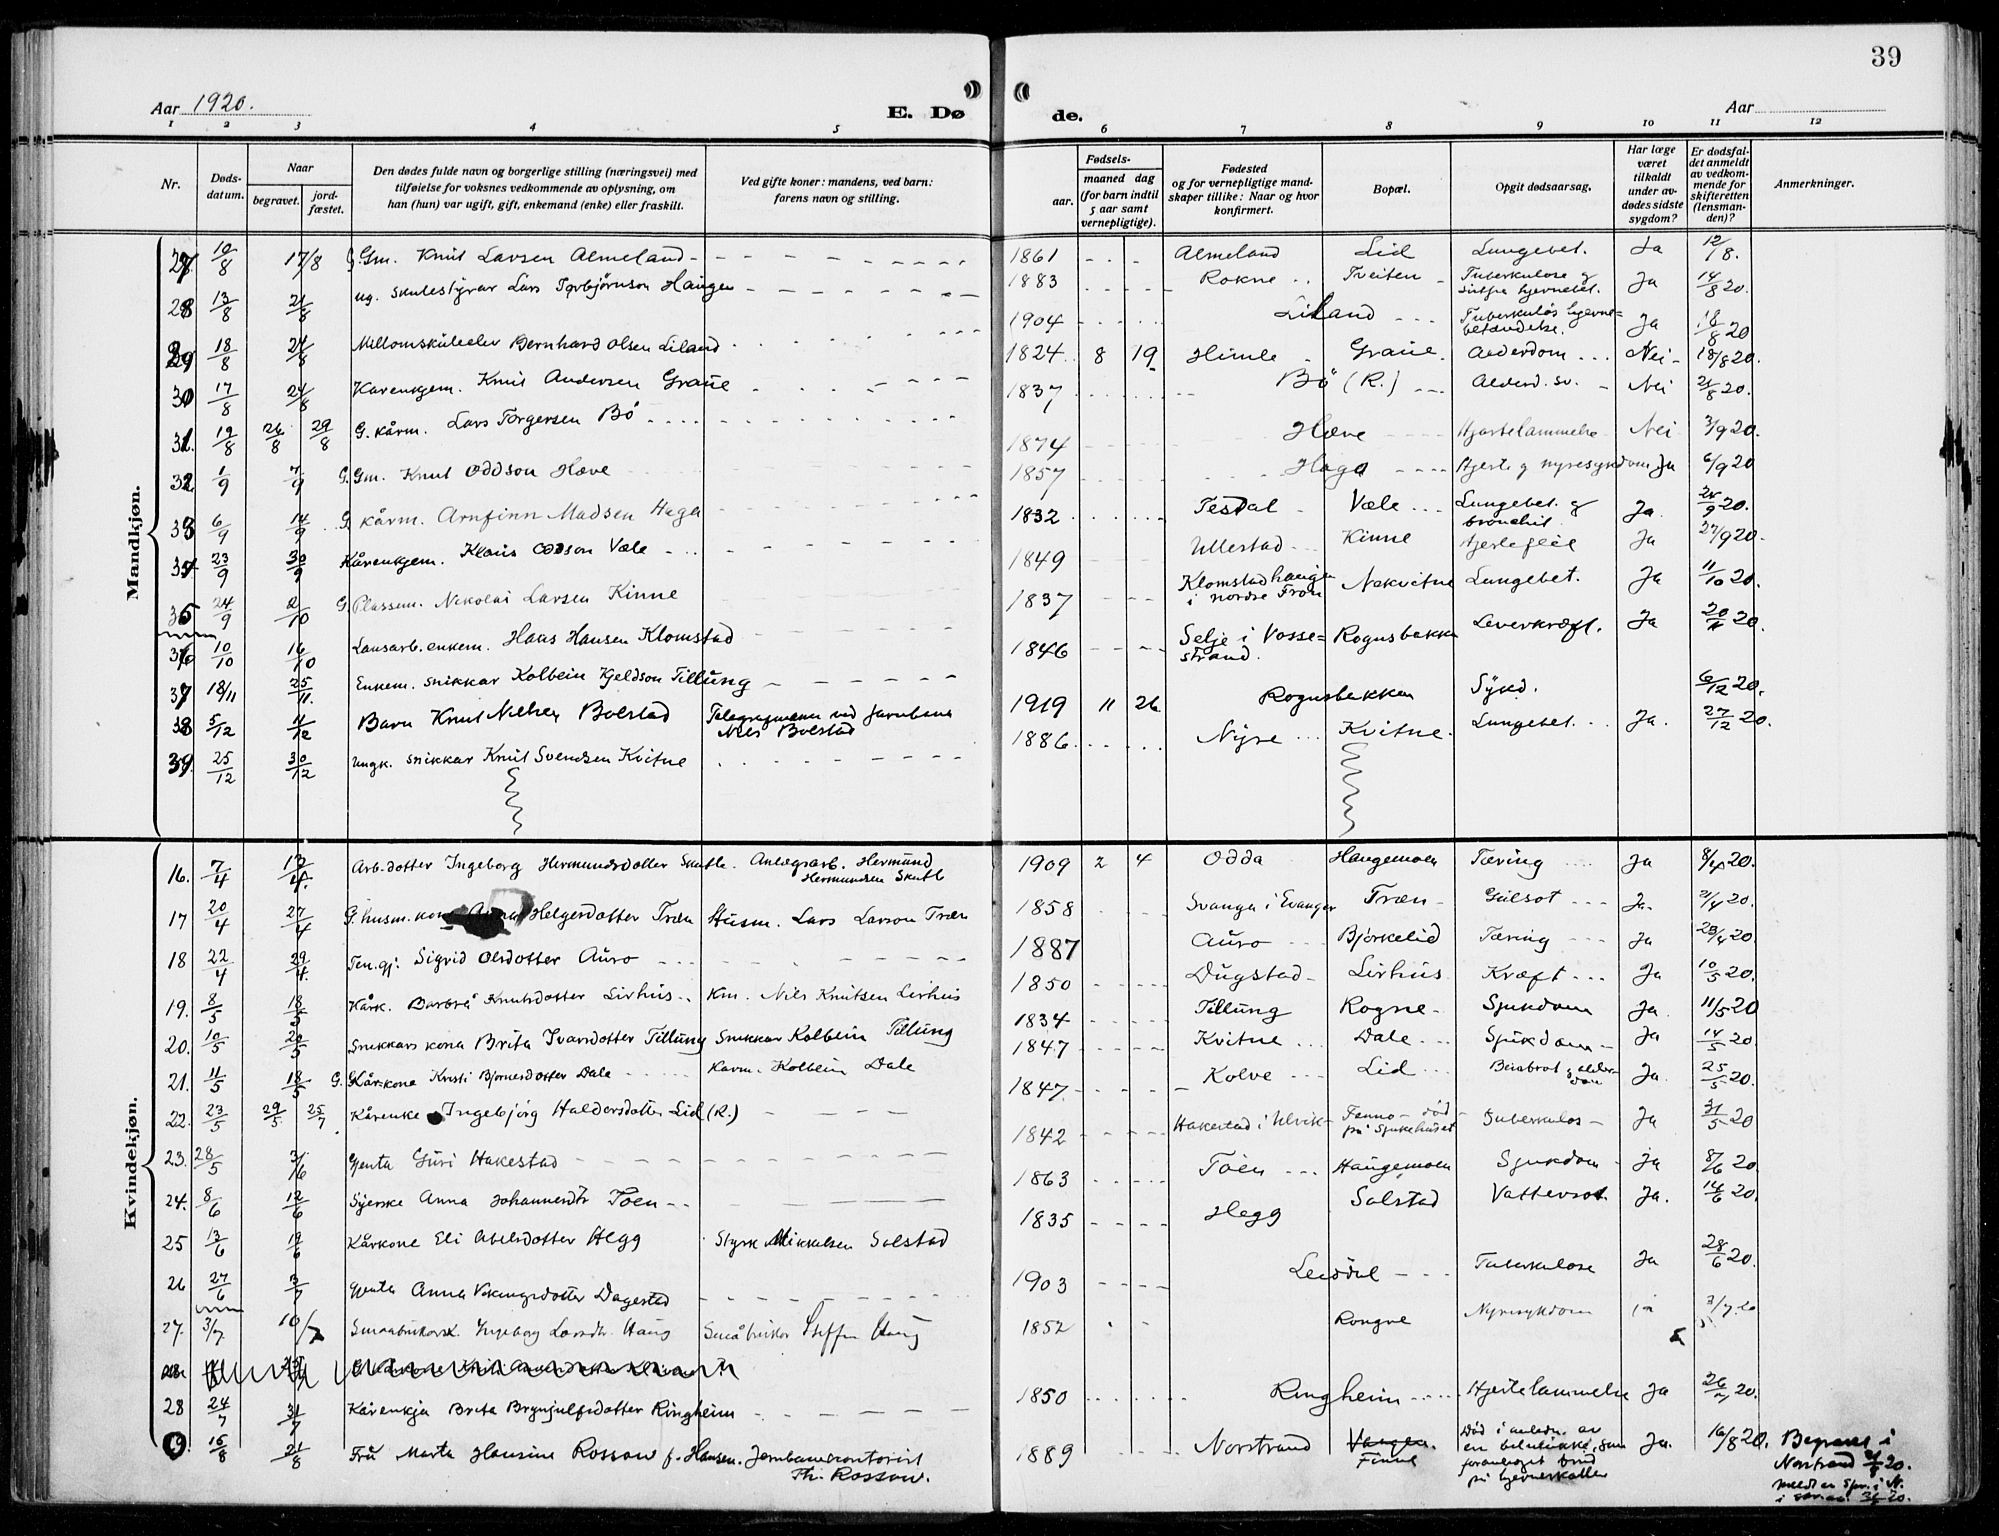 39
Aar 1920. E. Døde. Aar
1 2 3 4 5 6 7 8 9 10 11 12
Nr.
Døds-
datum.
Naar
begravet.
jord-
fæstet.
Den dødes fulde navn og borgerlige stilling (næringsvei) med
tilføielse for voksnes vedkommende av oplysning, om
han (hun) var ugift, gift, enkemand (enke) eller fraskilt.
Ved gifte koner: mandens, ved barn:
farens navn og stilling.
Fødsels-
aar.
maaned dag
(for barn indtil
5 aar samt
vernepligtige).
Fødested
og for vernepligtige mand-
skaper tillike: Naar og hvor
konfirmert.
Bopæl.
Opgit dødsaarsag.
Har læge
været
tilkaldt
under av-
dødes sidste
sygdom?
Er dødsfal-
det anmeldt
av vedkom-
mende for
skifteretten
(lensman-
den)?
Anmerkninger.
Mandkjøn.
27 10/8 17/8 G. Gm. Knut Larsen Almeland 1861 Almeland Lid Lungebet. Ja 12/8.
28 13/8 21/8 ug. skulestyrar Lars Torbjørnson Haugen 1883 Rokne Tveiten Tuberkulose g Ja 14/8 20.
29 18/8 24/8 Millomskuleelev Bernhard Olsen Liland 1904 Liland Tuberkuløs hjerne-
betændelse. Ja 18/8 20
30 17/8 24/8 Kårenkjem. Knut Andersen Graue 1824 8 19 Himle Graue Alderdom Nei 18/8 20.
31 19/8 26/8 29/8 G. kårm. Lars Torgersen Bø 1837 Bø (R.) Alderd. sv. Nei 21/8 20.
32 1/9 7/9 G. Gm. Knut Oddson Hæve 1874 Hæve Hjartelammelse Nei 3/9 20.
33 6/9 14/9 G. kårm. Arnfinn Madsen Haga 1857 Haga Hjerte g nyresygdom Ja 6/9 20
34 23/9 30/9 Kårenkjem. Klaus Odson Væle 1832 Tesdal Væle Lungebet. g
bronchit. Ja 25/9 20.
35 24/9 2/10 G. Plassm. Nikolai Larsen Kinne 1849 Ullestad Kinne Hjertefeil Ja 27/9 20.
36 10/10 16/10 Lausarb. enkem. Hans Hansen Klomstad 1837 Klomstadhaugen
i nordre Fron Nekvitne Lungebet. Ja 11/10 20.
37 18/11 25/11. Enkem. snikkar Kolbein Kjeldson Tillung 1846 Selje i Vosse-
strand. Rognsbakken Leverkræft. Ja 20/11 20.
38 5/12 11/12 Barn Knut Nielsen Bolstad Telegrafmann ved Jarnbana
Nils Bolstad 1919 11 26 Rognsbakken Sykd. 6/12 20.
39. 25/12 30/12 Ungk. snikkar Knut Svendsen Kvitne 1886 Nyre Kvitne Lungebet. Ja. 27/12 20.
Kvindekjøn.
16. 7/4 17/4. Arb. dotter Ingeborg Hermundsdotter Skutle. Anlægsarb. Hermund
Hermundsen Skutle 1909 2 4 Odda Haugemoen Tæring Ja 8/4 20.
17 20/4 27/4 G. husm. kona Helgesdotter Træn Husm. Lars Larson Træn 1858 Svanga i Evanger Træn Gulsot Ja. 21/4 20.
18 22/4 29/4. Ten. gj. Sigrid Olsdotter Auro 1887 Auro Bjørkelid Tæring Ja 23/4 20.
19. 8/5 18/5 Kårk. Barbrå Knutsdotter Lirhus Km. Nils Knutsen Lirhus 1850 Dugstad Lirhus Kræft Ja 10/5 20.
20. 10/5 20/5 Snikkars kona Brita Ivarsdotter Tillung Snikkar Kolbein Tillung 1834 Tillung Rogne Sjukdom Ja. 11/5 20
21. 11/5 18/5 G. Kårkone Kristi Bjørnesdotter Dale Kårm. Kolbein Dale 1847 Kvitne Dale Sjukdom Ja 14/5 20.
22. 23/5 29/5. 25/7 Kårenke Ingebjørg Haldorsdotter Lid (R.) 1847 Kolve Lid Beinbrot g alder-
dom Ja. 25/5 20.
23. 28/5 3/6 Gjenta Guri Hakestad 1842 Hakestad i Ulvik Fenno - død
på Sjukehuset Tuberkulos Ja 31/5 20
24. 8/6 12/6 Syerske Anna Johannesdtr Toen 1863 Toen Haugemoen Sjukdom Ja 8/6 20.
25 13/6 19/6 Kårkone Eli Abelsdotter Hegg Styrk Mikkelsen Solstad 1835 Hegg Solstad Vattersot Ja. 14/6 20.
26 27/6 3/7 Gjenta Anna Vikingsdotter Dagestad 1903 Leidal Tuberkulose Ja 28/6 20.
27. 3/7 10/7 Småabrukersk. Ingeborg Larsdtr. Haug Småbruker Steffen Haug 1852 Rongve Nyresykdom ja 3/7 20
28 24/7 31/7 Kårenkja Brita Brynjulfsdotter Ringheim 1850 Ringheim Hjertelammelse Ja 26/7 20.
15/8 21/8 Frú Marta Hansine Rossow f. Hansen. Jernbanecontorist
Th. Rossow. 1889 Norstrand Vangen.
Finne Død i anledn. av
en bilulukke, som
foranleiget brud
på hjerneskallen Ja. 16/8 20. Begraves i
Norstrand 21/8 20.